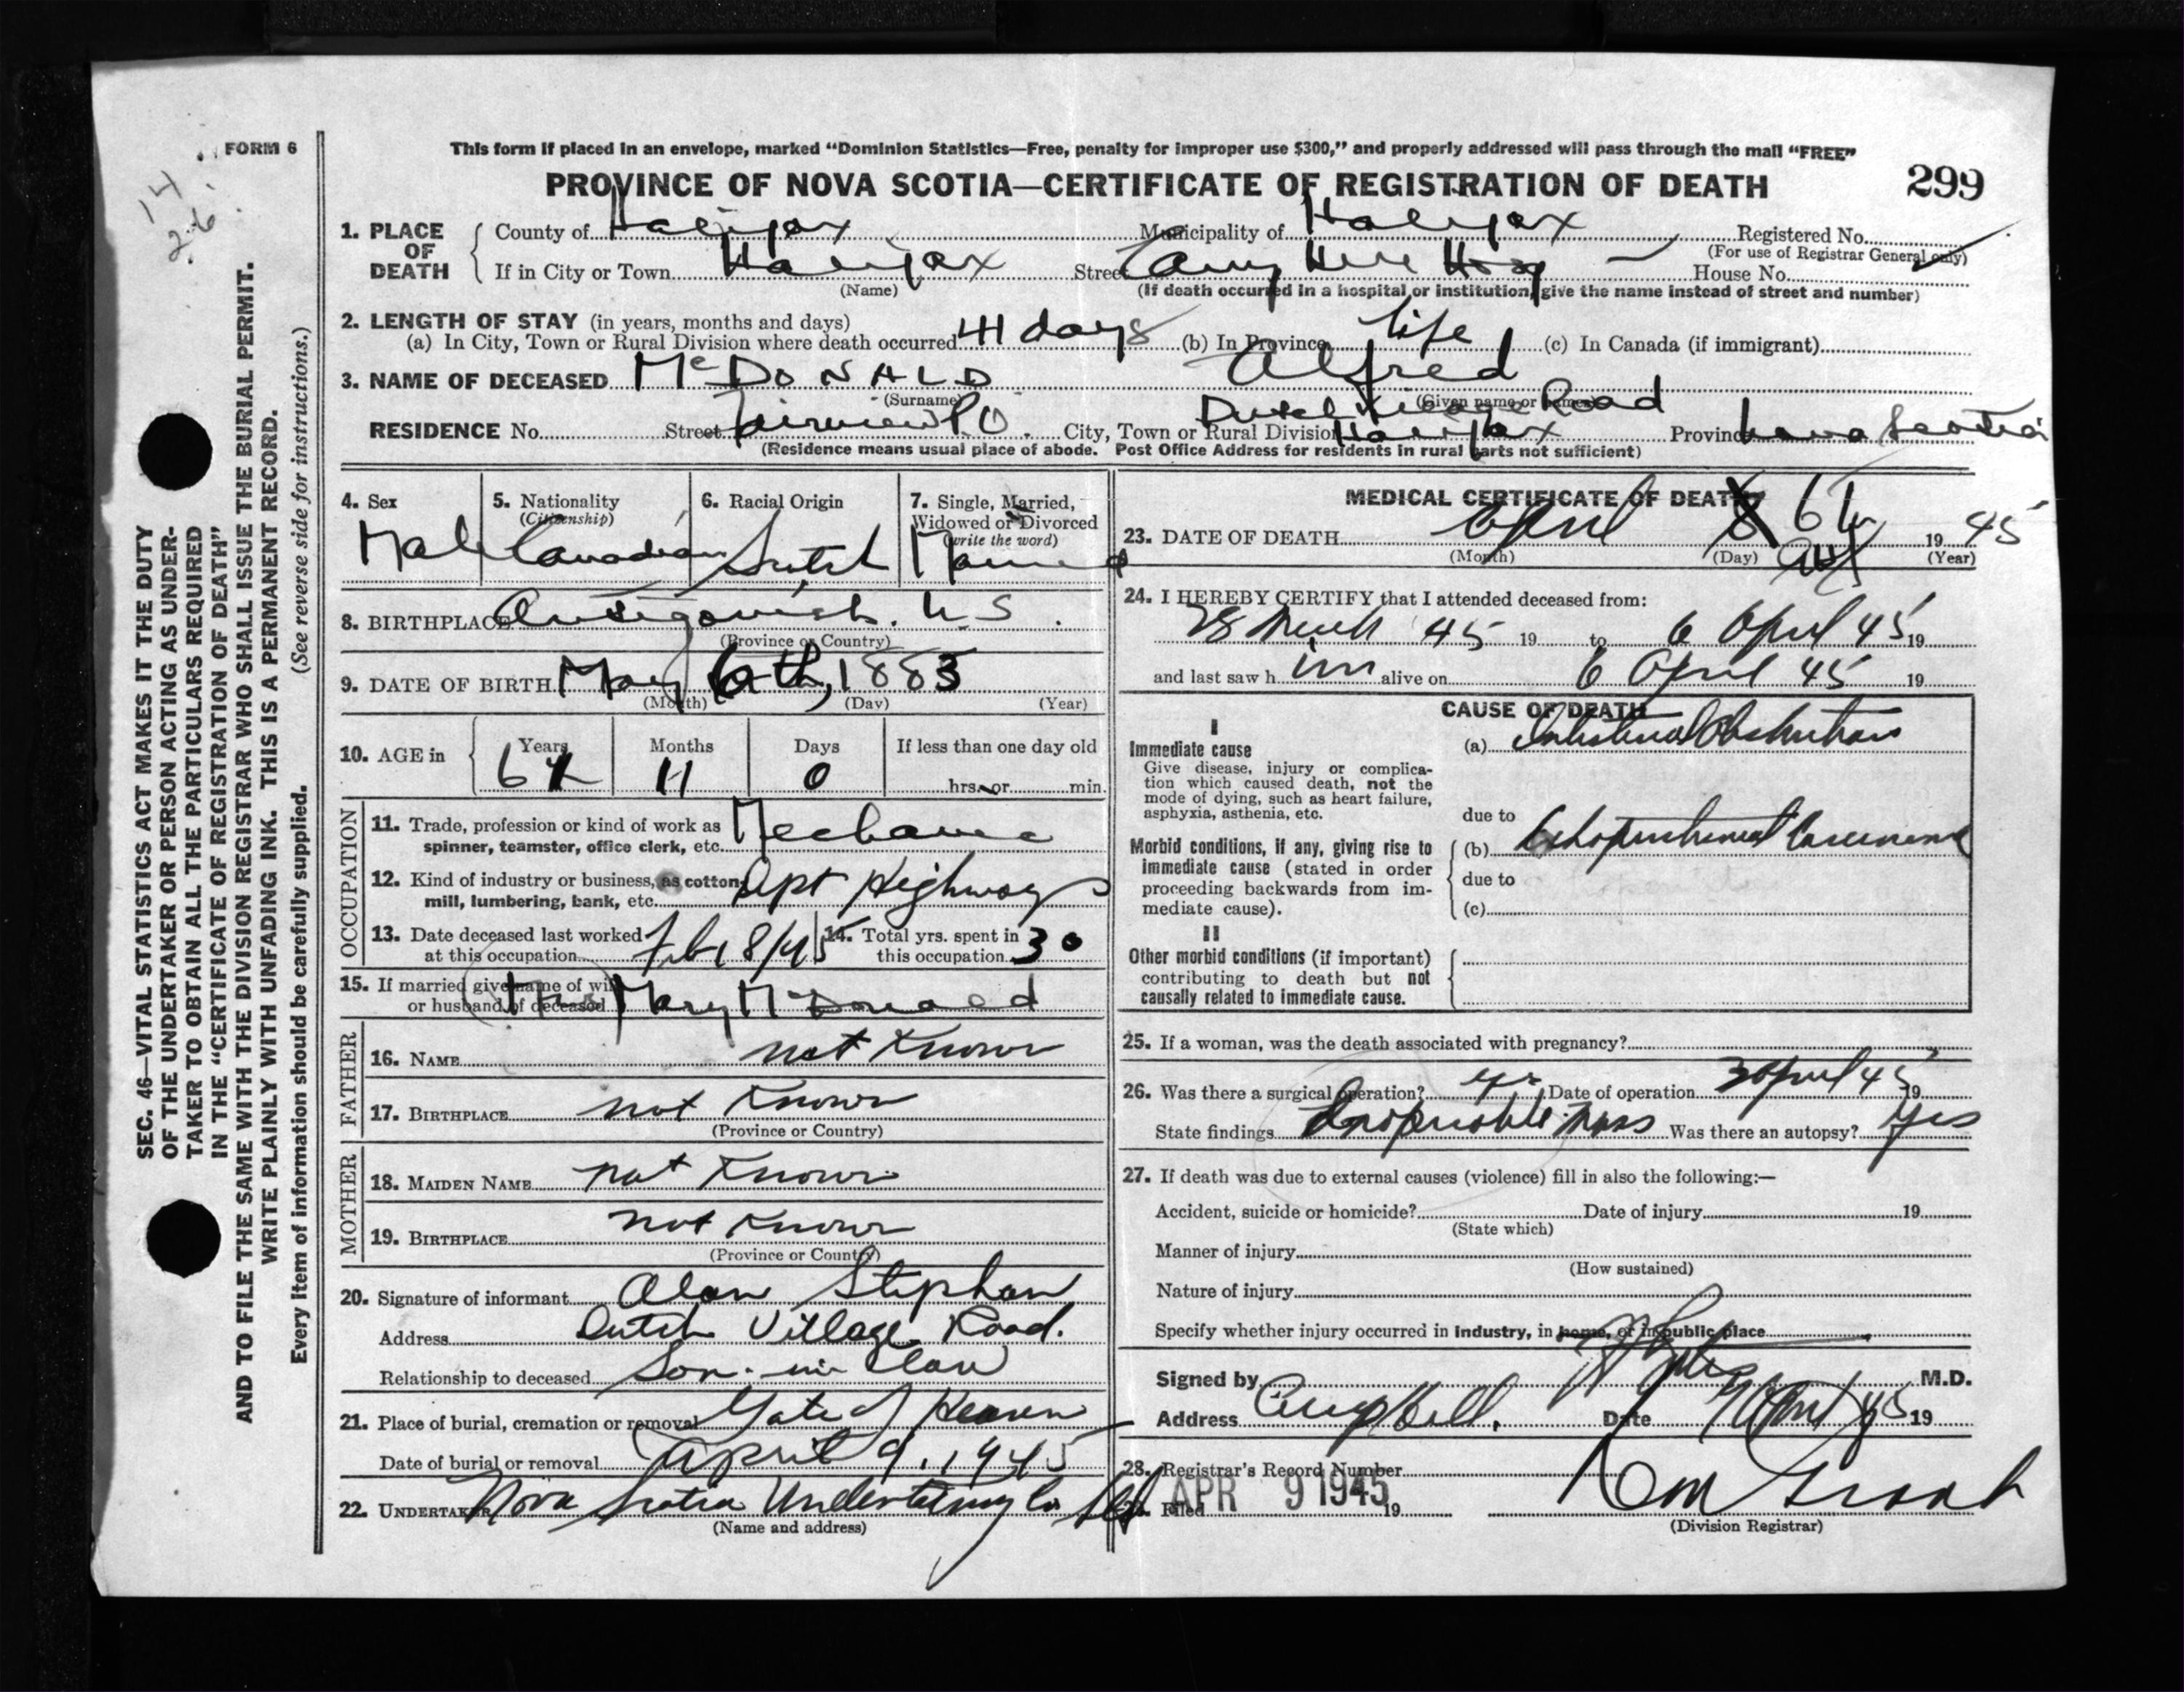 FORM 6
14
26.
This form if placed in an envelope, marked “Dominion Statistics—Free, penalty for improper use $300,” and properly addressed will pass through the mail “FREE”
PROVINCE OF NOVA SCOTIA—CERTIFICATE OF REGISTRATION OF DEATH 299
1. PLACE OF DEATH
County of Halifax Municipality of Halifax Registered No.
(For use of Registrar General only)
If in City or Town Halifax Street Camp Hill Hosp House No.
(Name) (If death occurred in a hospital or institution, give the name instead of street and number)
2. LENGTH OF STAY (in years, months and days)
(a) In City, Town or Rural Division where death occurred 41 days (b) In Province life (c) In Canada (if immigrant)
3. NAME OF DECEASED McDONALD Alfred
(Surname) (Given name or names)
Dutch Village Road
RESIDENCE No. Street Fairview P.O. City, Town or Rural Division Halifax Province Nova Scotia
(Residence means usual place of abode. Post Office Address for residents in rural parts not sufficient)
4. Sex
Male
5. Nationality
(Citizenship)
Canadian
6. Racial Origin
Scotch
7. Single, Married,
Widowed or Divorced
(write the word)
Married
8. BIRTHPLACE Antigonish. N.S.
(Province or Country)
9. DATE OF BIRTH May 6th, 1883
(Month) (Day) (Year)
10. AGE in
Years Months Days If less than one day old
61 11 0 hrs. or min.
OCCUPATION
11. Trade, profession or kind of work as
spinner, teamster, office clerk, etc. Mechanic
12. Kind of industry or business, as cotton
mill, lumbering, bank, etc. Dpt Highways
13. Date deceased last worked
at this occupation Feb 8/45
14. Total yrs. spent in
this occupation 30
15. If married give name of wife
or husband of deceased (Mrs) Mary McDonald
FATHER
16. NAME not Known
17. BIRTHPLACE not Known
(Province or Country)
MOTHER
18. MAIDEN NAME not Known
19. BIRTHPLACE not Known
(Province or Country)
20. Signature of informant Alan Stephen
Address Dutch Village Road.
Relationship to deceased Son-in-law
21. Place of burial, cremation or removal Gate of Heaven
Date of burial or removal April 9, 1945
22. UNDERTAKER Nova Scotia Undertaking Co
(Name and address)
MEDICAL CERTIFICATE OF DEATH
23. DATE OF DEATH April 8 6th 19 45
(Month) (Day) (Year)
24. I HEREBY CERTIFY that I attended deceased from:
28 March 45 19 to 6 April 45 19
and last saw h im alive on 6 April 45 19
CAUSE OF DEATH
I
Immediate cause
Give disease, injury or complica-
tion which caused death, not the
mode of dying, such as heart failure,
asphyxia, asthenia, etc.
(a) Intestinal Obstruction
due to
Morbid conditions, if any, giving rise to
immediate cause (stated in order
proceeding backwards from im-
mediate cause).
(b) Carcinoma
due to
(c)
II
Other morbid conditions (if important)
contributing to death but not
causally related to immediate cause.
25. If a woman, was the death associated with pregnancy?
26. Was there a surgical operation? yes Date of operation 3 April 45 19
State findings Inoperable Mass Was there an autopsy? Yes
27. If death was due to external causes (violence) fill in also the following:—
Accident, suicide or homicide? Date of injury 19
(State which)
Manner of injury
(How sustained)
Nature of injury
Specify whether injury occurred in Industry, in home, or in public place
Signed by M.D.
Address Camp Hill. Date April 45 19
28. Registrar's Record Number
29. Filed APR 9 1945 19
(Division Registrar)
SEC. 46—VITAL STATISTICS ACT MAKES IT THE DUTY
OF THE UNDERTAKER OR PERSON ACTING AS UNDER-
TAKER TO OBTAIN ALL THE PARTICULARS REQUIRED
IN THE “CERTIFICATE OF REGISTRATION OF DEATH”
AND TO FILE THE SAME WITH THE DIVISION REGISTRAR WHO SHALL ISSUE THE BURIAL PERMIT.
WRITE PLAINLY WITH UNFADING INK. THIS IS A PERMANENT RECORD.
Every item of information should be carefully supplied. (See reverse side for instructions.)